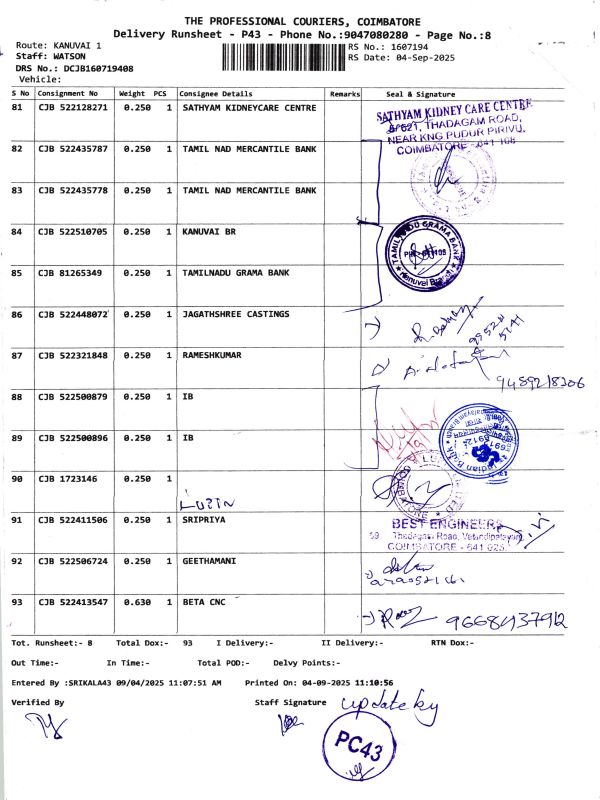 THE PROFESSIONAL COURIERS, COIMBATORE
Delivery Runsheet - P43 - Phone No.:9047080280 - Page No.:8
Route: KANUVAI 1
RS No.: 1607194
Staff: WATSON
RS Date: 04-Sep-2025
DRS No.: DCJB160719408
Vehicle:
S No Consignment No Weight PCS Consignee Details Remarks Seal & Signature
81 CJB 522128271 0.250 1 SATHYAM KIDNEYCARE CENTRE
SATHYAM KIDNEY CARE CENTRE
THADAGAM ROAD,
NEAR KNG PUDUR PIRIVU,
COIMBATORE - 641 108
82 CJB 522435787 0.250 1 TAMIL NAD MERCANTILE BANK
83 CJB 522435778 0.250 1 TAMIL NAD MERCANTILE BANK
84 CJB 522510705 0.250 1 KANUVAI BR
TAMILNADU GRAMA BANK
Kanuvai Branch
85 CJB 81265349 0.250 1 TAMILNADU GRAMA BANK
86 CJB 522448072 0.250 1 JAGATHSHREE CASTINGS
87 CJB 522321848 0.250 1 RAMESHKUMAR
88 CJB 522500879 0.250 1 IB
89 CJB 522500896 0.250 1 IB
Indian Bank
90 CJB 1723146 0.250 1
COIMBATORE
91 CJB 522411506 0.250 1 SRIPRIYA
BEST ENGINEERS
59 Thadagam Road,
COIMBATORE - 641 025.
92 CJB 522506724 0.250 1 GEETHAMANI
93 CJB 522413547 0.630 1 BETA CNC
Tot. Runsheet:- 8 Total Dox:- 93 I Delivery:- II Delivery:- RTN Dox:-
Out Time:- In Time:- Total POD:- Delvy Points:-
Entered By :SRIKALA43 09/04/2025 11:07:51 AM Printed On: 04-09-2025 11:10:56
Verified By
Staff Signature
update by
PC43